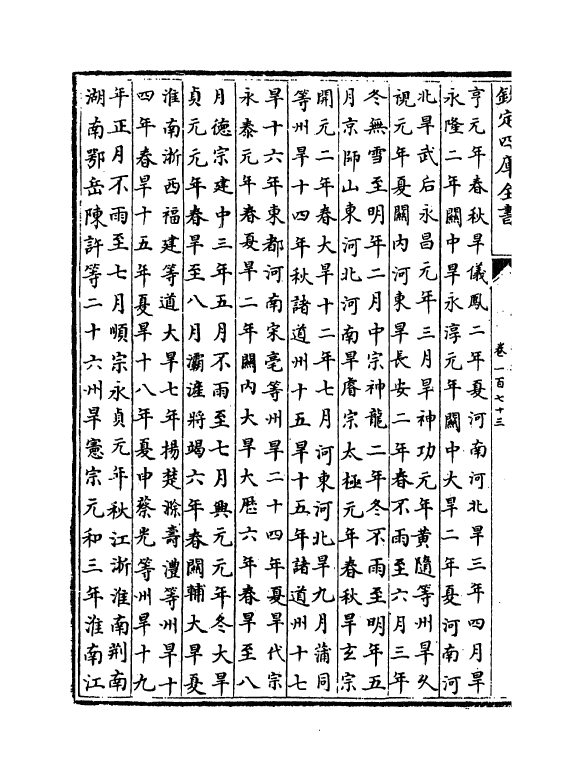 欽定四庫全書
卷一百七十三
亨元年春秋旱儀鳳二年夏河南河北旱三年四月旱
永隆二年關中旱永淳元年關中大旱二年夏河南河
北旱武后永昌元年三月旱神功元年黃隨等州旱久
視元年夏關内河東旱長安二年春不雨至六月三年
冬無雪至明年二月中宗神龍二年冬不雨至明年五
月京師山東河北河南旱睿宗太極元年春秋旱玄宗
開元二年春大旱十二年七月河東河北旱九月蒲同
等州旱十四年秋諸道州十五旱十五年諸道州十七
旱十六年東都河南宋亳等州旱二十四年夏旱代宗
永泰元年春夏旱二年關内大旱大厯六年春旱至八
月德宗建中三年五月不雨至七月興元元年冬大旱
貞元元年春旱至八月灞滻將竭六年春關輔大旱夏
淮南浙西福建等道大旱七年揚楚滁壽澧等州旱十
四年春旱十五年夏旱十八年夏申蔡光等州旱十九
年正月不雨至七月順宗永貞元年秋江浙淮南荆南
湖南鄂岳陳許等二十六州旱憲宗元和三年淮南江